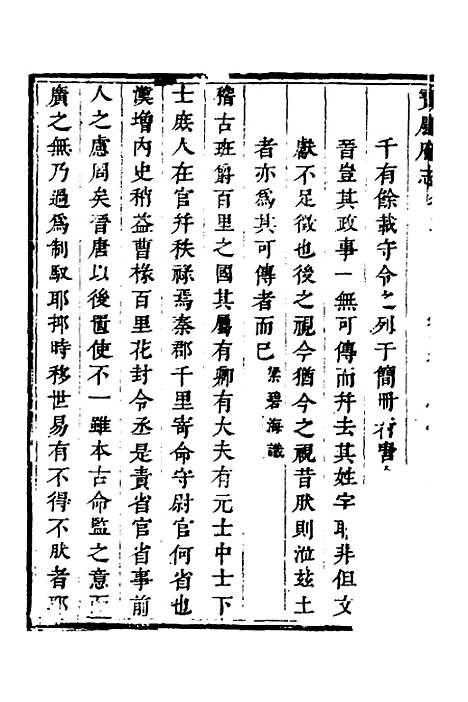 寶慶府志
千有餘載守令之列于簡冊者
晉豈其政事一無可傳而幷去其姓字耶非但文
獻不足徵也後之視今猶今之視昔肰則涖兹土
者亦爲其可傳者而已 梁碧海識
稽古班爵百里之國其屬有卿有大夫有元士中士下
士庶人在官幷秩祿焉秦郡千里寄命守尉官何省也
漢增內史稍益曹椽百里花封令丞是責省官省事前
人之慮周矣晉唐以後置使不一雖本古命監之意而
廣之無乃過爲制馭耶抑時移世易有不得不肰者耶